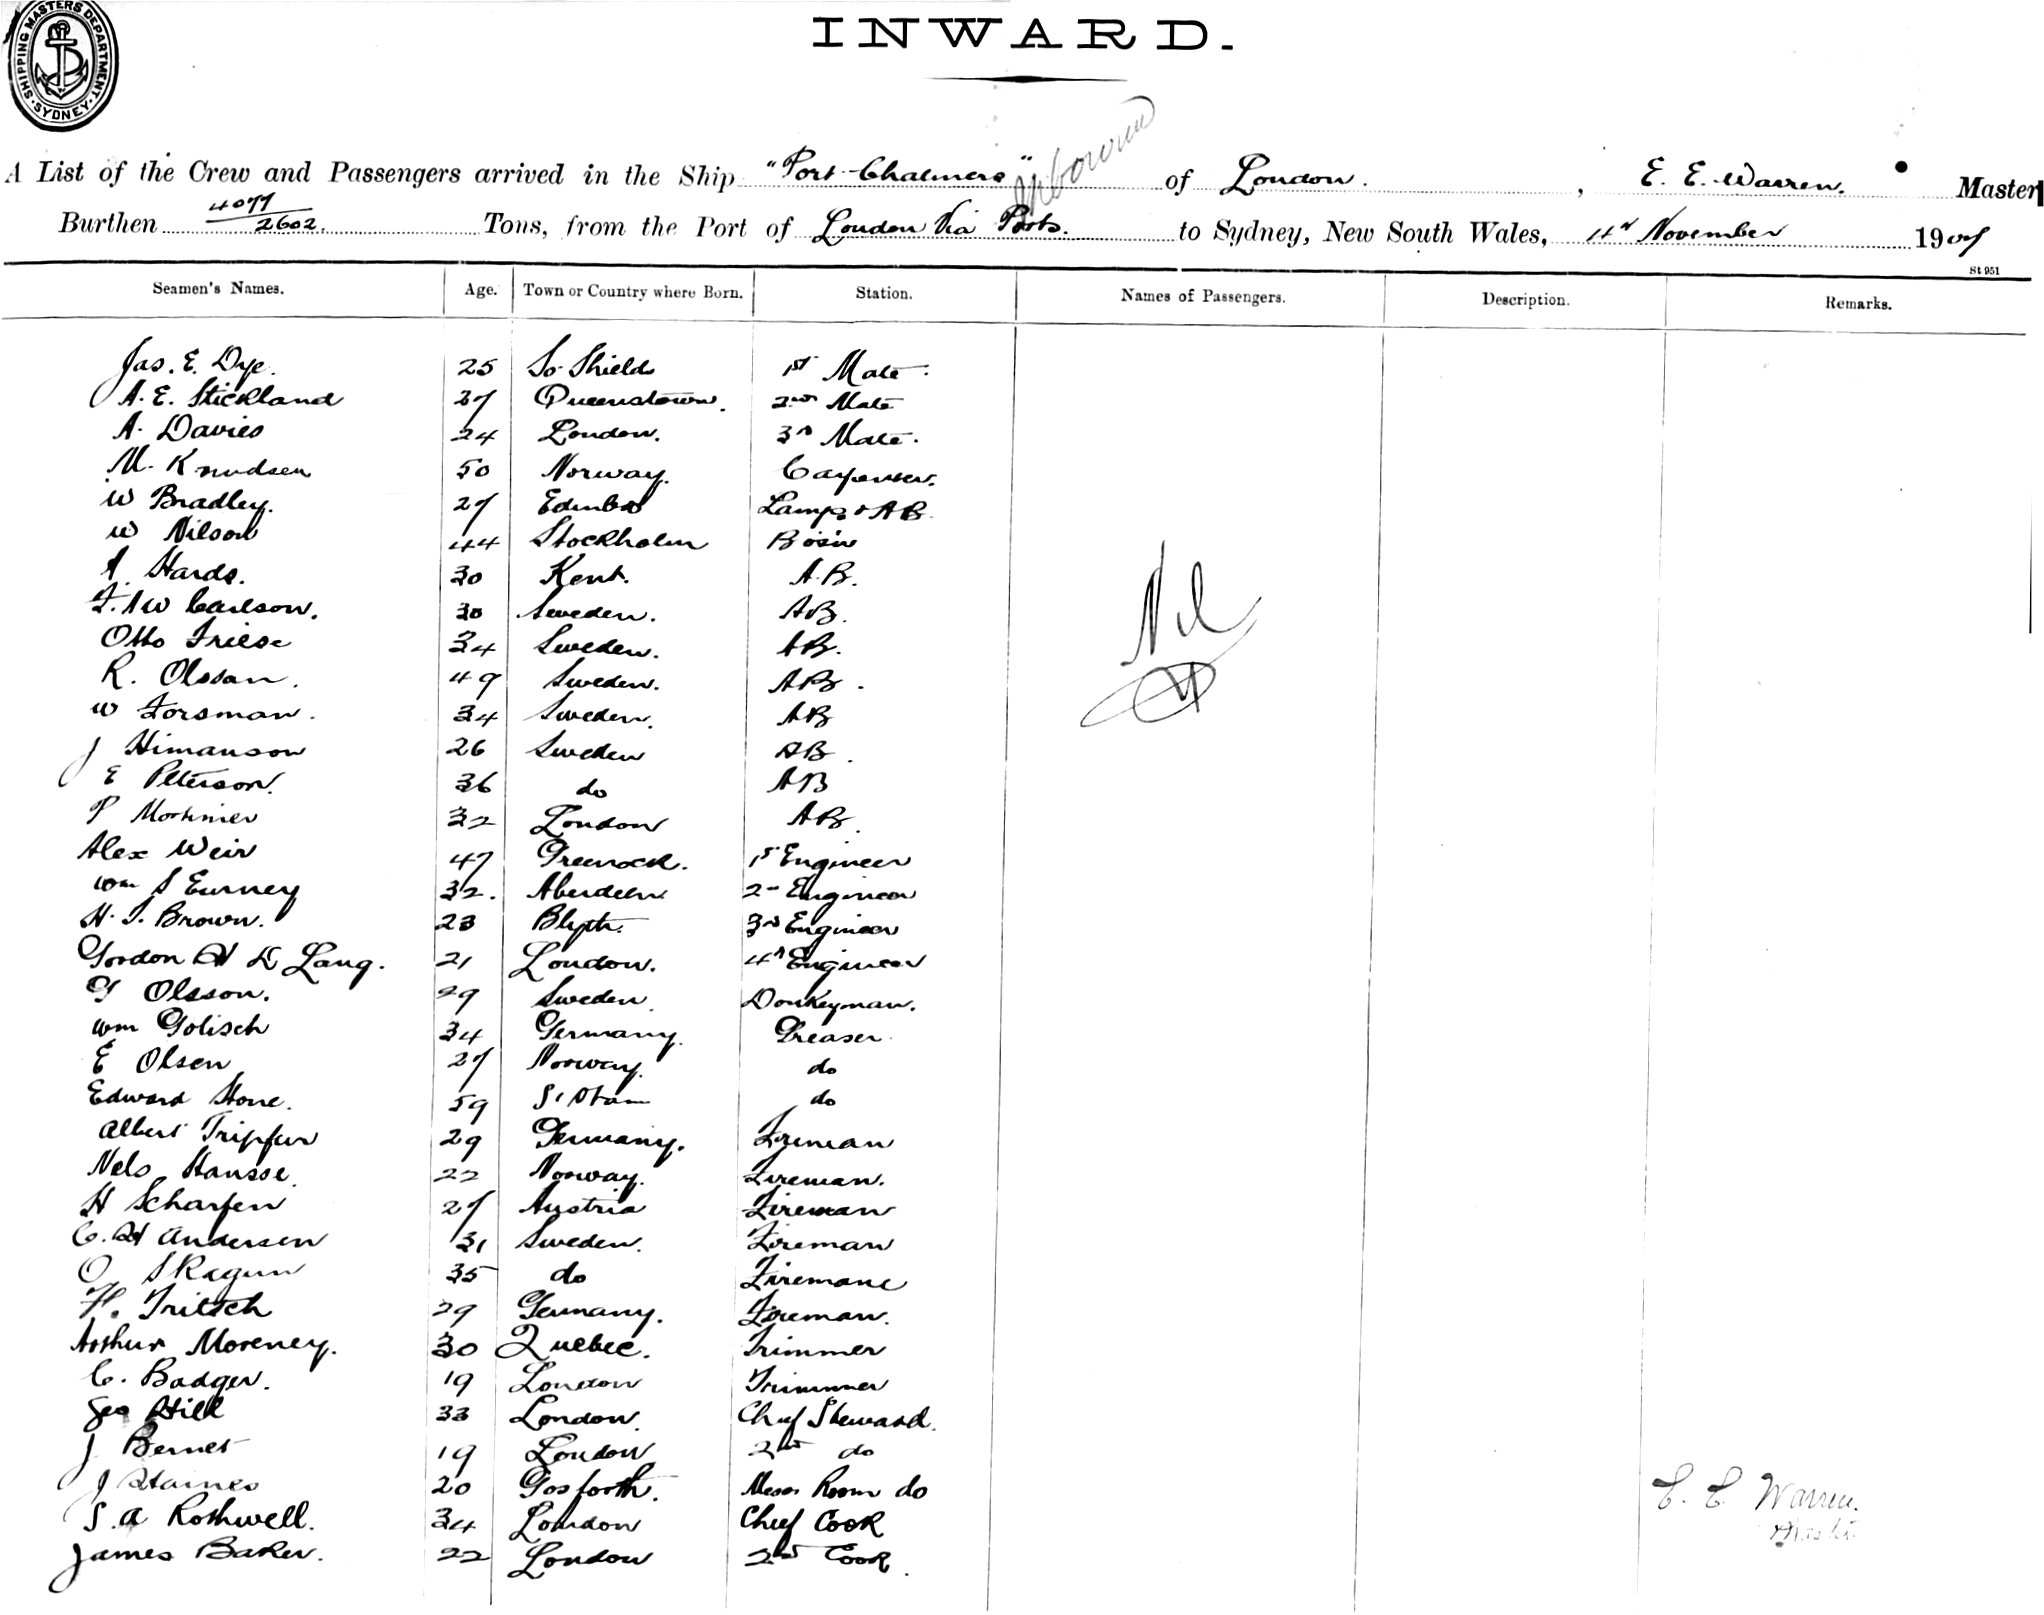 SHIPPING MASTERS DEPARTMENT. SYDNEY.
INWARD.
A List of the Crew and Passengers arrived in the Ship "Port Chalmers" of London. , E. E. Warren. Master
Burthen 4077/2602. Tons, from the Port of London Via Ports. to Sydney, New South Wales, 4th November 1907
St 951
Seamen's Names. Age. Town or Country where Born. Station. Names of Passengers. Description. Remarks.
Jas. E. Dye. 25 So Shields 1st Mate.
A. E. Stickland 27 Queenstown. 2nd Mate
A. Davies 24 London. 3rd Mate.
M. Knudsen 50 Norway. Carpenter.
W Bradley. 27 Edinbro Lamps & AB.
W Nilson 44 Stockholm Bosn
A. Hards. 30 Kent. A.B.
F. A W Carlson. 30 Sweden. AB.
Otto Friese 34 Sweden. AB.
R. Olssan. 49 Sweden. AB.
W Forsman. 34 Sweden. AB
J Himanson 26 Sweden AB.
E Peterson. 36 do AB
P Mortimer 32 London AB.
Nil
Alex Weir 47 Greenock. 1st Engineer
Wm S Eurney 32. Aberdeen 2nd Engineer
H. S. Brown. 23 Blyth. 3rd Engineer
Gordon H D Lang. 21 London. 4th Engineer
G Olsson. 29 Sweden. Donkeyman.
Wm Golisch 34 Germany. Greaser
E Olsen 27 Norway. do
Edward Stone. 59 do
Albert Tripfur 29 Germany. Fireman
Nels Hansse. 22 Norway. Fireman.
H Scharfen 27 Austria Fireman
C. H Andersen 31 Sweden. Fireman
O Skagun 35 do Firemane
H. Tritsch 29 Germany. Fireman.
Arthur Moreney. 30 Quebec. Trimmer
C. Badger. 19 London Trimmer
Geo Hill 33 London. Chief Steward.
J Bernet 19 London 2nd do
J Haines 20 Gosforth. Mess Room do
S. A Rothwell. 34 London Chief Cook
James Baker. 22 London 2nd Cook.
E. E. Warren.
Master